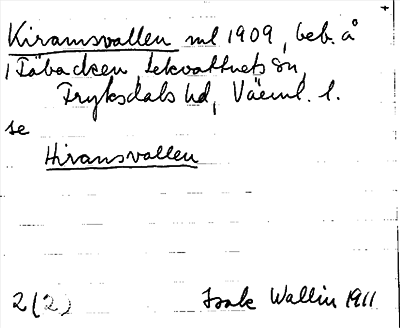 Kiramsvallen ml 1909, beb. å
Täbacken, Lekvattnets sn,
Fryksdals hd, Värml. l.
se
Hiramsvallen
2(2) Isak Wallin 1911